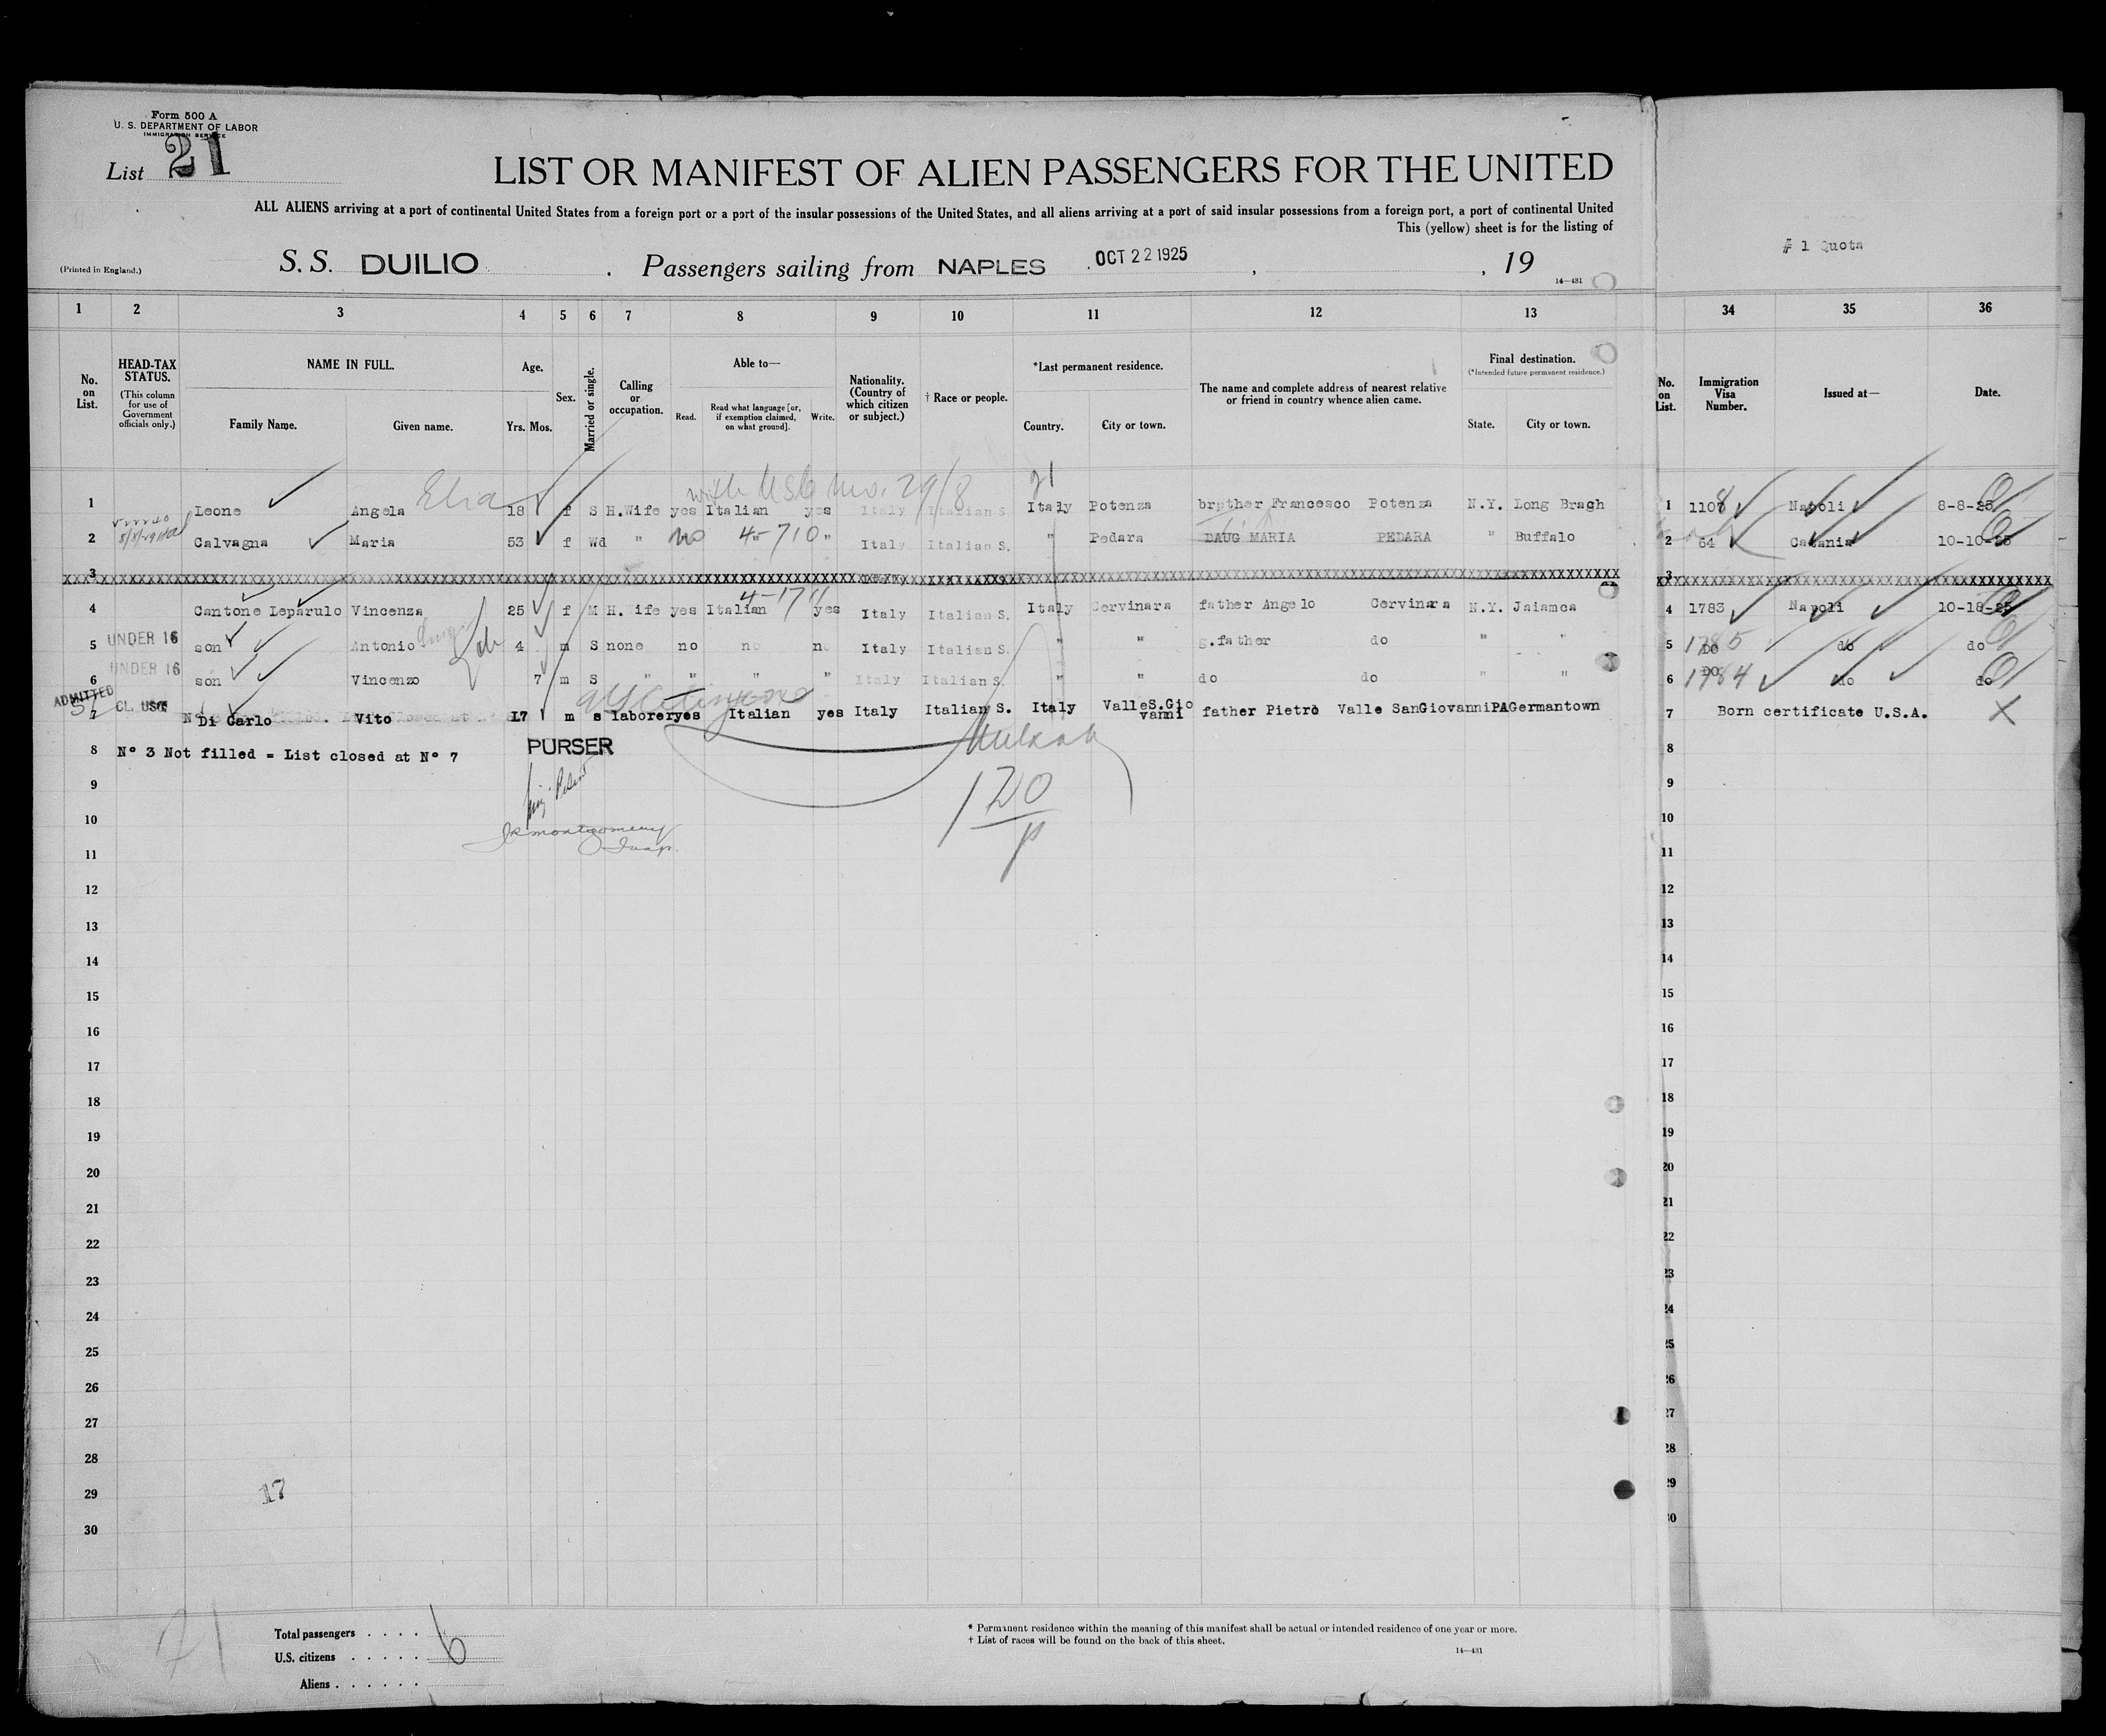 Form 500 A
U. S. DEPARTMENT OF LABOR
IMMIGRATION SERVICE
List 21
LIST OR MANIFEST OF ALIEN PASSENGERS FOR THE UNITED
ALL ALIENS arriving at a port of continental United States from a foreign port or a port of the insular possessions of the United States, and all aliens arriving at a port of said insular possessions from a foreign port, a port of continental United
This (yellow) sheet is for the listing of
# 1 Quota
(Printed in England.) S. S. DUILIO . Passengers sailing from NAPLES . OCT 22 1925 , , 19
14—481
1 2 3 4 5 6 7 8 9 10 11 12 13 34 35 36
No. on List.
HEAD-TAX STATUS.
(This column for use of Government officials only.)
NAME IN FULL.
Family Name. Given name.
Age.
Yrs. Mos.
Sex.
Married or single.
Calling or occupation.
Able to—
Read. Read what language [or, if exemption claimed, on what ground]. Write.
Nationality. (Country of which citizen or subject.)
† Race or people.
*Last permanent residence.
Country. City or town.
The name and complete address of nearest relative or friend in country whence alien came.
Final destination.
(*Intended future permanent residence.)
State. City or town.
No. on List.
Immigration Visa Number.
Issued at—
Date.
21
1 Leone Angela Elia 18 f S H.Wife yes Italian yes Italy Italian S. Italy Potenza brother Francesco Potenza N.Y. Long Brach 1 1108 Napoli 8-8-25
2 Calvagna Maria 53 f Wd " no 4-710 " Italy Italian S. " Pedara DAUG MARIA PEDARA " Buffalo 2 64 Catania 10-10-25
3 3
4 Cantone Leparulo Vincenza 25 f M H.Wife yes Italian yes Italy Italian S. Italy Cervinara father Angelo Cervinara N.Y. Jaiamca 4 1783 Napoli 10-18-25
5 UNDER 16 son Antonio 4 m S none no no no Italy Italian S. " " g.father do " " 5 1785 do do
6 UNDER 16 son Vincenzo 7 m S " " " " Italy Italian S. " " do do " " 6 1784 do do
ADMITTED
7 Di Carlo Vito 17 m s laborer yes Italian yes Italy Italian S. Italy Valle S.Giovanni father Pietro Valle SanGiovanni PA Germantown 7 Born certificate U.S.A. X
8 N° 3 Not filled = List closed at N° 7 PURSER 8
9 9
10 10
120
11 11
12 12
13 13
14 14
15 15
16 16
17 17
18 18
19 19
20 20
21 21
22 22
23 23
24 24
25 25
26 26
27 27
28 28
29 17 29
30 30
Total passengers . . . . 6
U.S. citizens . . . . .
Aliens . . . . . .
* Permanent residence within the meaning of this manifest shall be actual or intended residence of one year or more.
† List of races will be found on the back of this sheet.
14—481